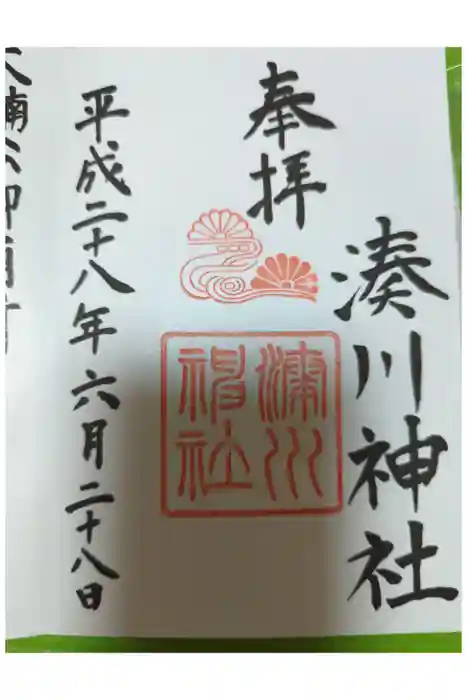 湊川神社
奉拝
湊川
神社
平成二十八年六月二十八日
大楠公御